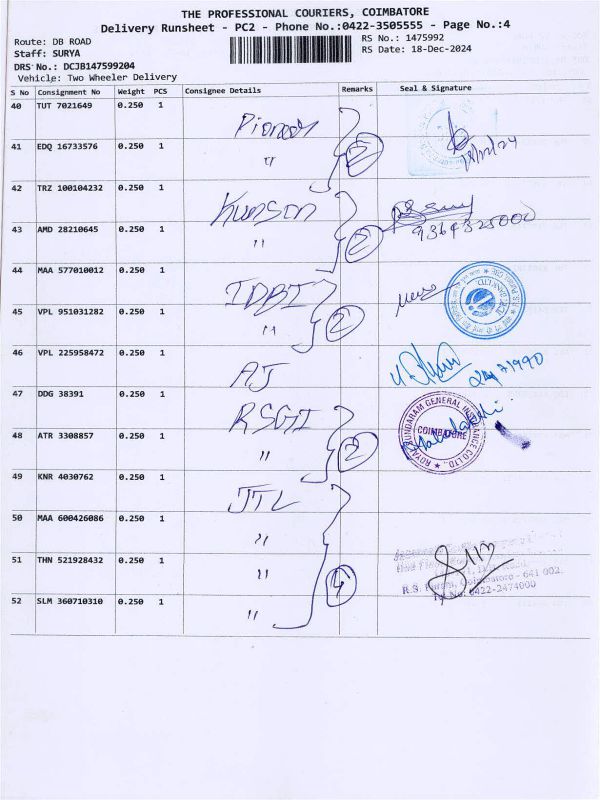 THE PROFESSIONAL COURIERS, COIMBATORE
Delivery Runsheet - PC2 - Phone No.:0422-3505555 - Page No.:4
Route: DB ROAD
Staff: SURYA
DRS No.: DCJB147599204
Vehicle: Two Wheeler Delivery
RS No.: 1475992
RS Date: 18-Dec-2024
S No Consignment No Weight PCS Consignee Details Remarks Seal & Signature
40 TUT 7021649 0.250 1 Pioneer
41 EDQ 16733576 0.250 1 " 2 18/12/24
42 TRZ 100104232 0.250 1 Kunson
43 AMD 28210645 0.250 1 " 2 9364325000
44 MAA 577010012 0.250 1 IDBI
45 VPL 951031282 0.250 1 " 2
46 VPL 225958472 0.250 1 AJ
47 DDG 38391 0.250 1 RSGI
48 ATR 3308857 0.250 1 " 2
ROYAL SUNDARAM GENERAL INSURANCE CO LTD., COIMBATORE
49 KNR 4030762 0.250 1 JTL
50 MAA 600426086 0.250 1 "
51 THN 521928432 0.250 1 " 4
R.S. Puram, Coimbatore - 641 002.
Tel No: 0422-2474000
52 SLM 360710310 0.250 1 "